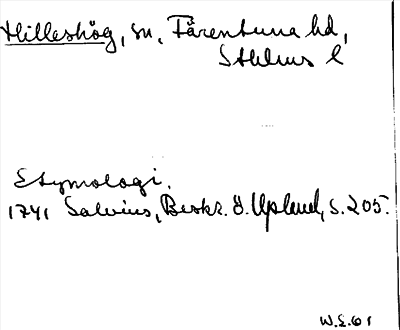 Hilleshög, sn, Färentuna hd,
Sthlms l
Etymologi.
1741 Salvius, Beskr. ö. Upland, s. 205.
W.E. 61